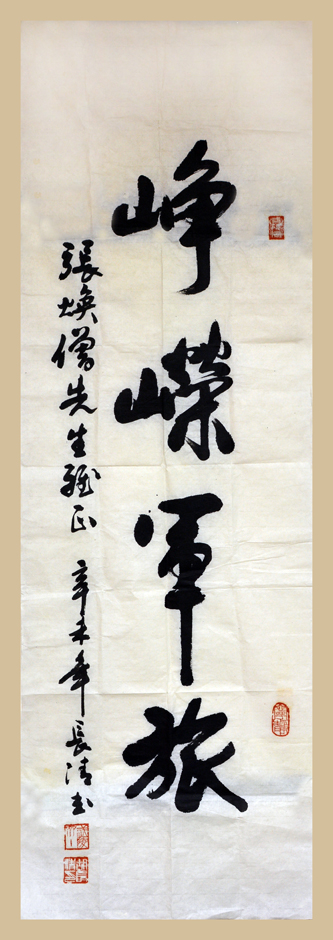 峥嵘军旅
張煥僧先生雅正 辛未年長清书